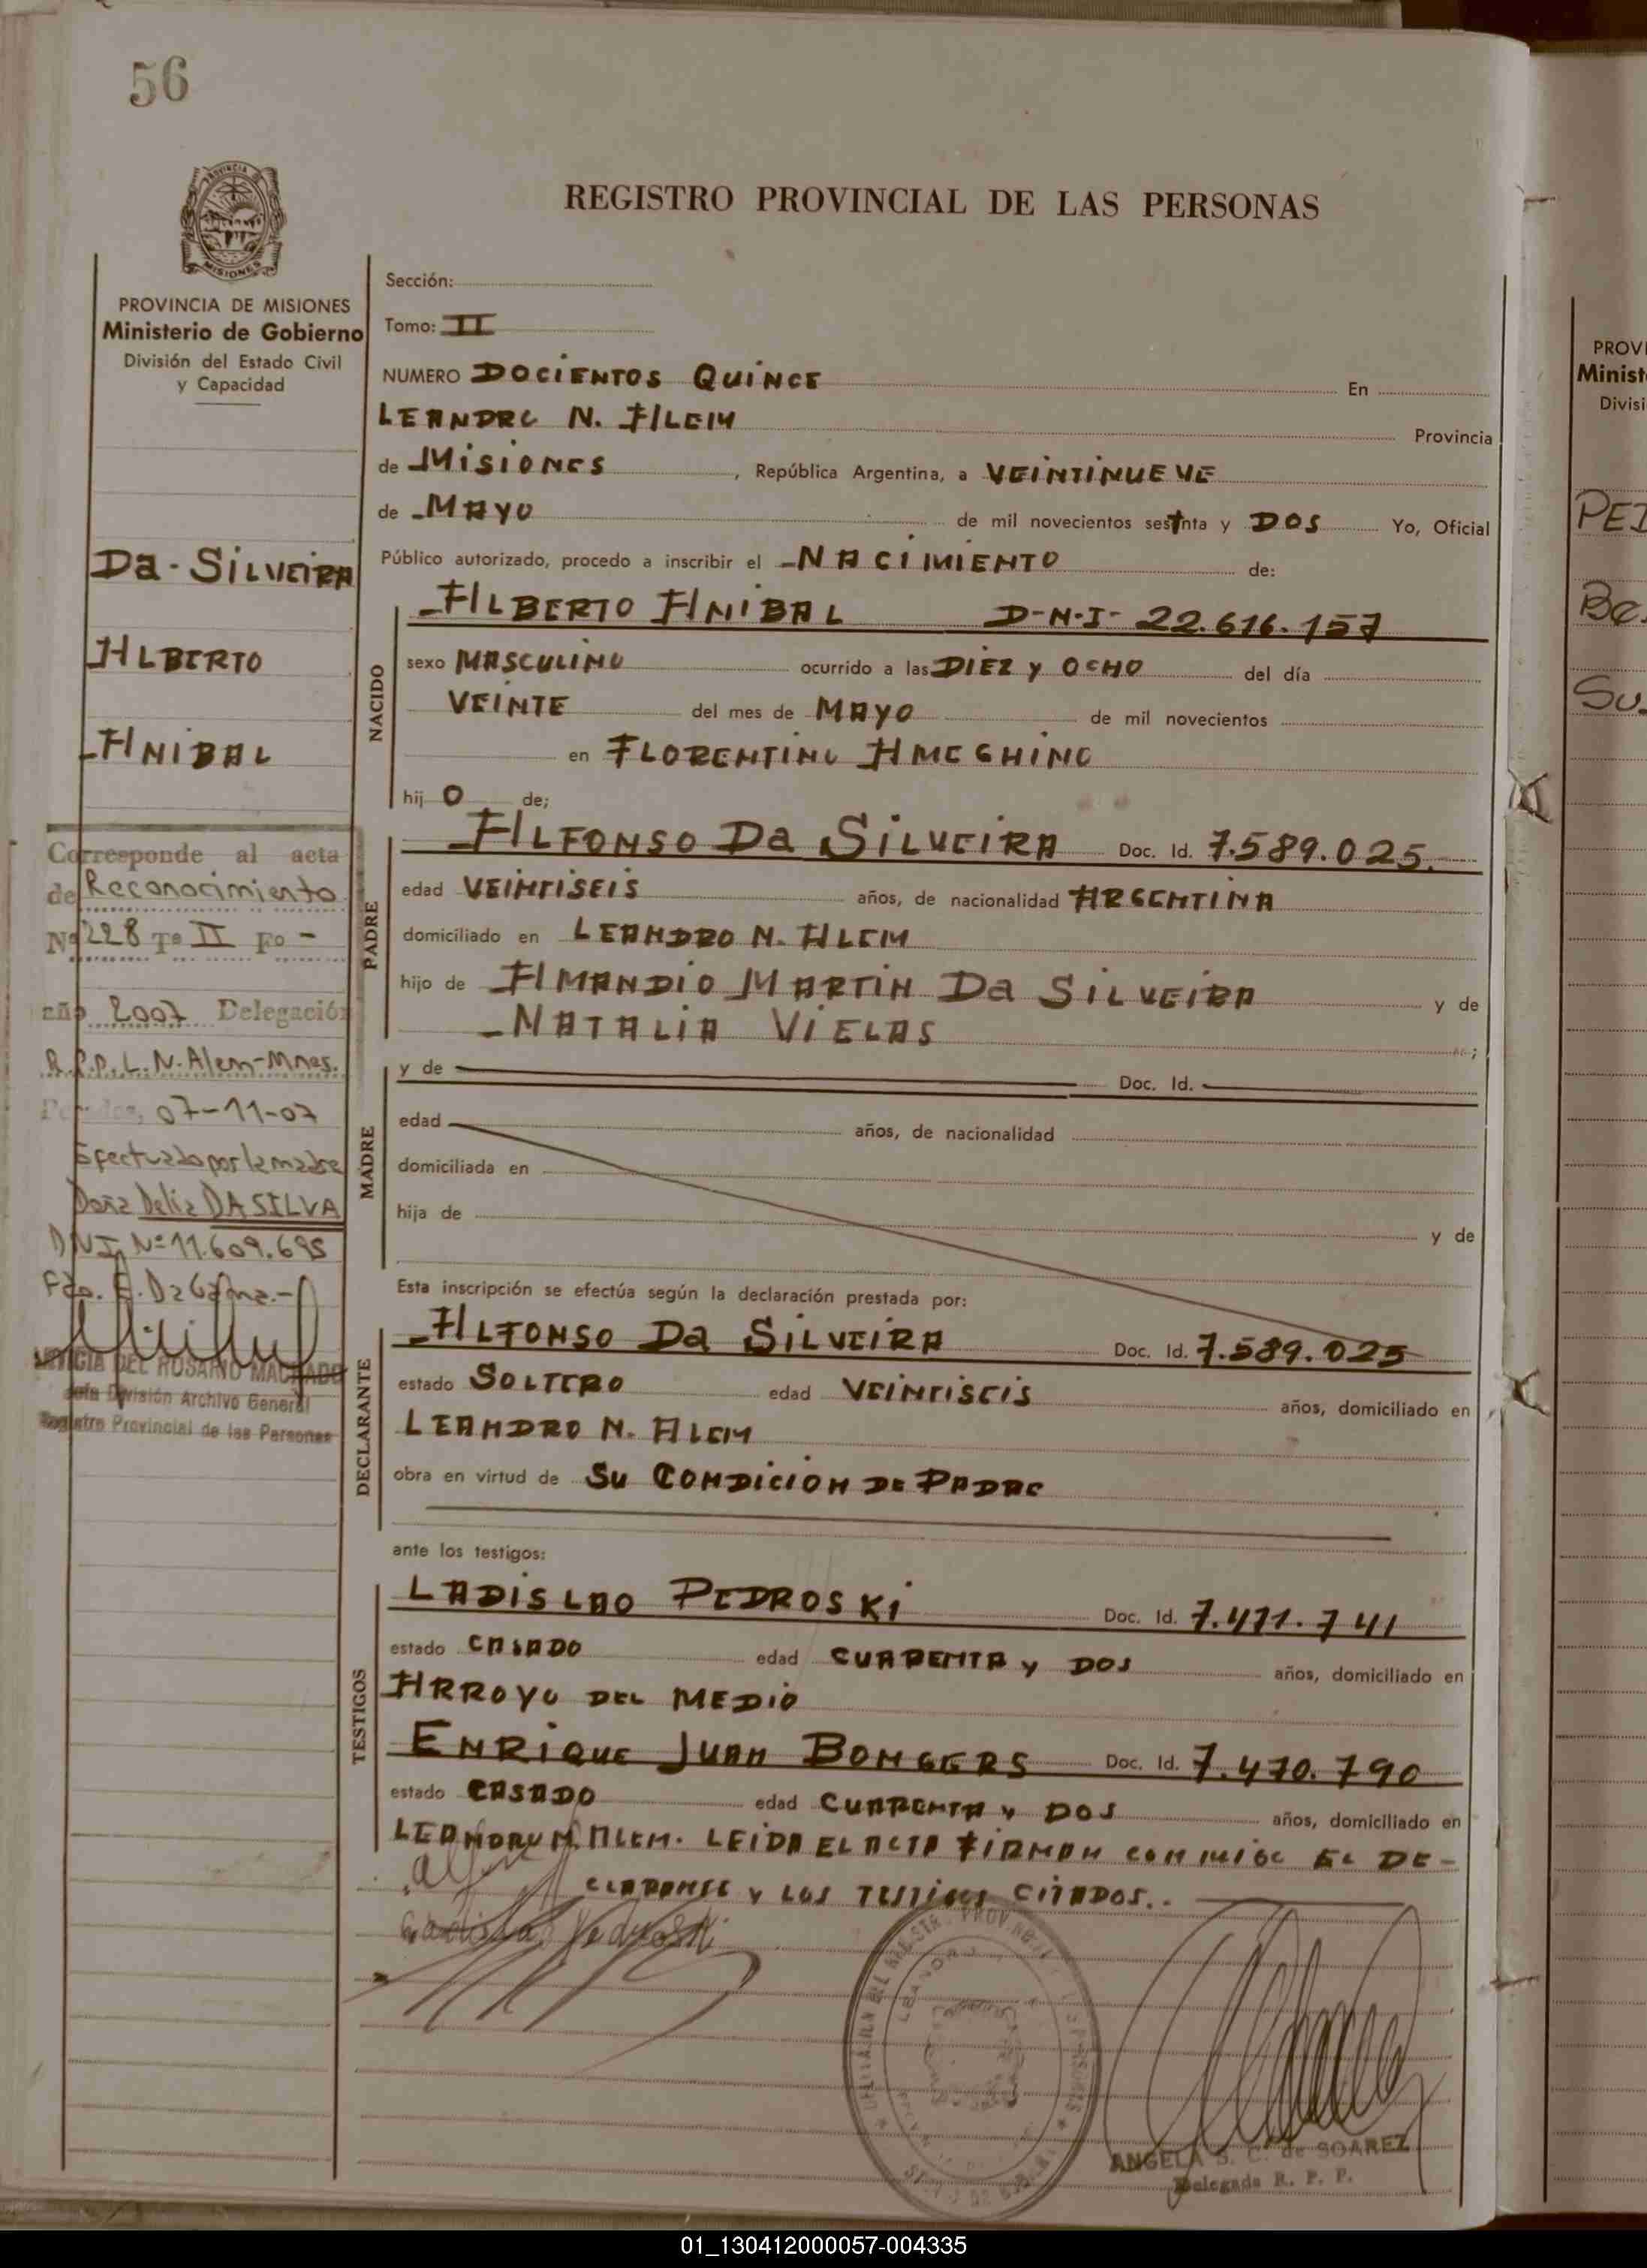 56
REGISTRO PROVINCIAL DE LAS PERSONAS
MISIONES
PROVINCIA DE MISIONES
Ministerio de Gobierno
División del Estado Civil
y Capacidad
Da-SiLVEiRA
ALBERTO
ANiBAL
Corresponde al acta
de Reconocimiento
Nº 228 Tº II Fº -
año 2007 Delegación
R.P.P. L.N. Alem-Mnes.
07-11-07
Efectuado por la madre
Doña Delia DA SILVA
DNI Nº 11.609.695
DEL ROSARIO MACHADO
Jefa División Archivo General
Registro Provincial de las Personas
Sección:
Tomo: II
NUMERO DOCIENTOS QUINCE En
LEANDRO N. ALEM Provincia
de MISIONES, República Argentina, a VEINTINUEVE
de MAYO de mil novecientos setenta y DOS Yo, Oficial
Público autorizado, procedo a inscribir el NACIMIENTO de:
NACIDO
ALBERTO ANIBAL D-N-I- 22.616.157
sexo MASCULINO ocurrido a las DIEZ y OCHO del día
VEINTE del mes de MAYO de mil novecientos
en FLORENTINO AMEGHINO
hijO de;
PADRE
ALFONSO Da SILVEIRA Doc. Id. 7.589.025.
edad VEINTISEIS años, de nacionalidad ARGENTINA
domiciliado en LEANDRO N. ALEM
hijo de AMANDIO MARTIN Da SILVEIRA y de
NATALIA VIELAS
MADRE
y de Doc. Id.
edad años, de nacionalidad
domiciliada en
hija de y de
Esta inscripción se efectúa según la declaración prestada por:
DECLARANTE
ALFONSO Da SILVEIRA Doc. Id. 7.589.025
estado SOLTERO edad VEINTISEIS años, domiciliado en
LEANDRO N. ALEM
obra en virtud de SU CONDICION DE PADRE
ante los testigos:
TESTIGOS
LADISLAO PEDROSKI Doc. Id. 7.471.741
estado CASADO edad CUARENTA y DOS años, domiciliado en
ARROYO DEL MEDIO
ENRIQUE JUAN BONGERS Doc. Id. 7.470.790
estado CASADO edad CUARENTA y DOS años, domiciliado en
LEANDRO N. ALEM. LEIDA EL ACTA FIRMAN CONMIGO EL DE-
CLARANTE y LOS TESTIGOS CITADOS..
Ladislao Pedroski
ANGELA S. C. de SOAREZ
Delegada R. P. P.
PROVI
Minist
Divisi
01_130412000057-004335